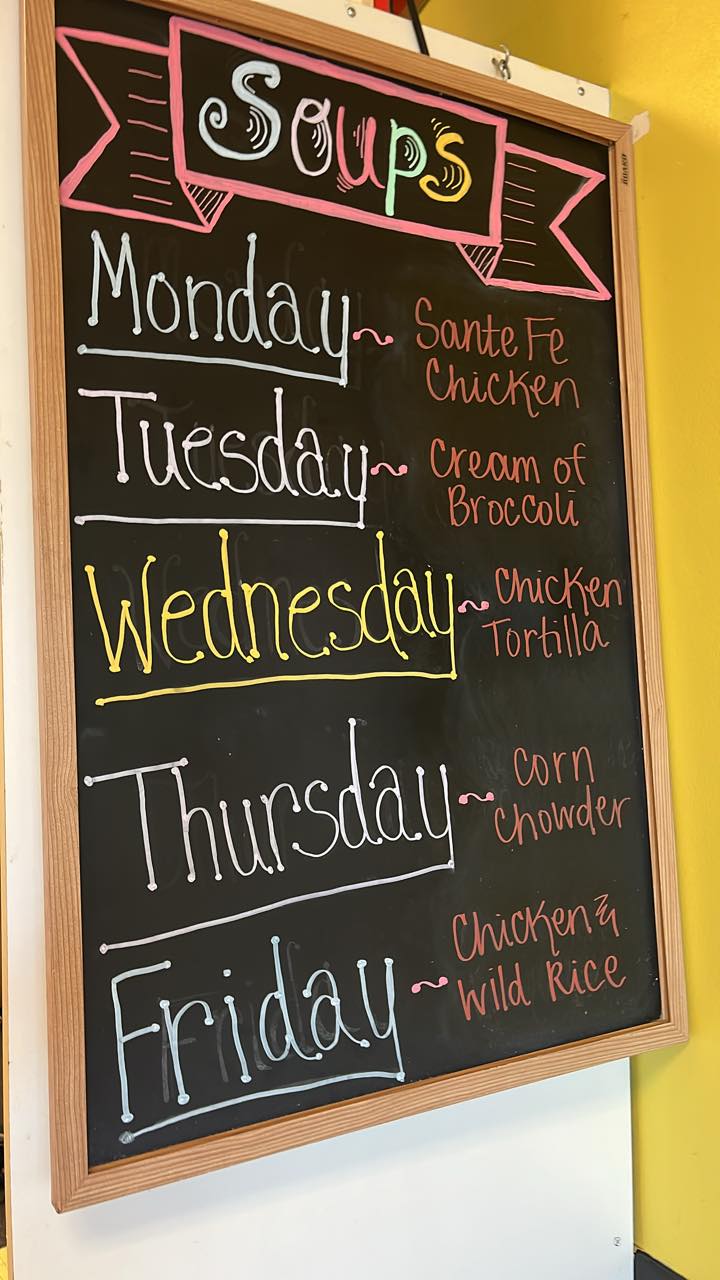 Soups
Monday ~ Sante Fe
Chicken
Tuesday ~ Cream of
Broccoli
Wednesday ~ Chicken
Tortilla
Thursday ~ Corn
Chowder
Friday ~ Chicken &
Wild Rice